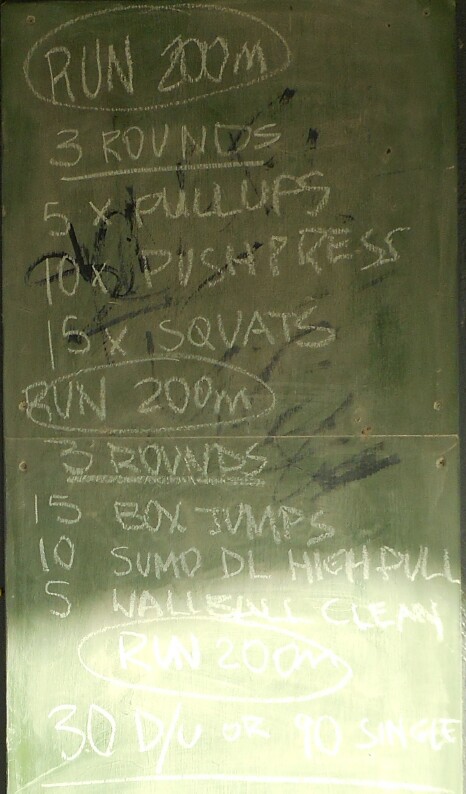 RUN 200m
3 ROUNDS
5 X PULLUPS
10x PUSHPRESS
15 x SQUATS
RUN 200m
3 ROUNDS
15 BOX JUMPS
10 SUMO DL HIGHPULL
5 WALLBALL CLEAN
RUN 200m
30 D/U OR 90 SINGLE